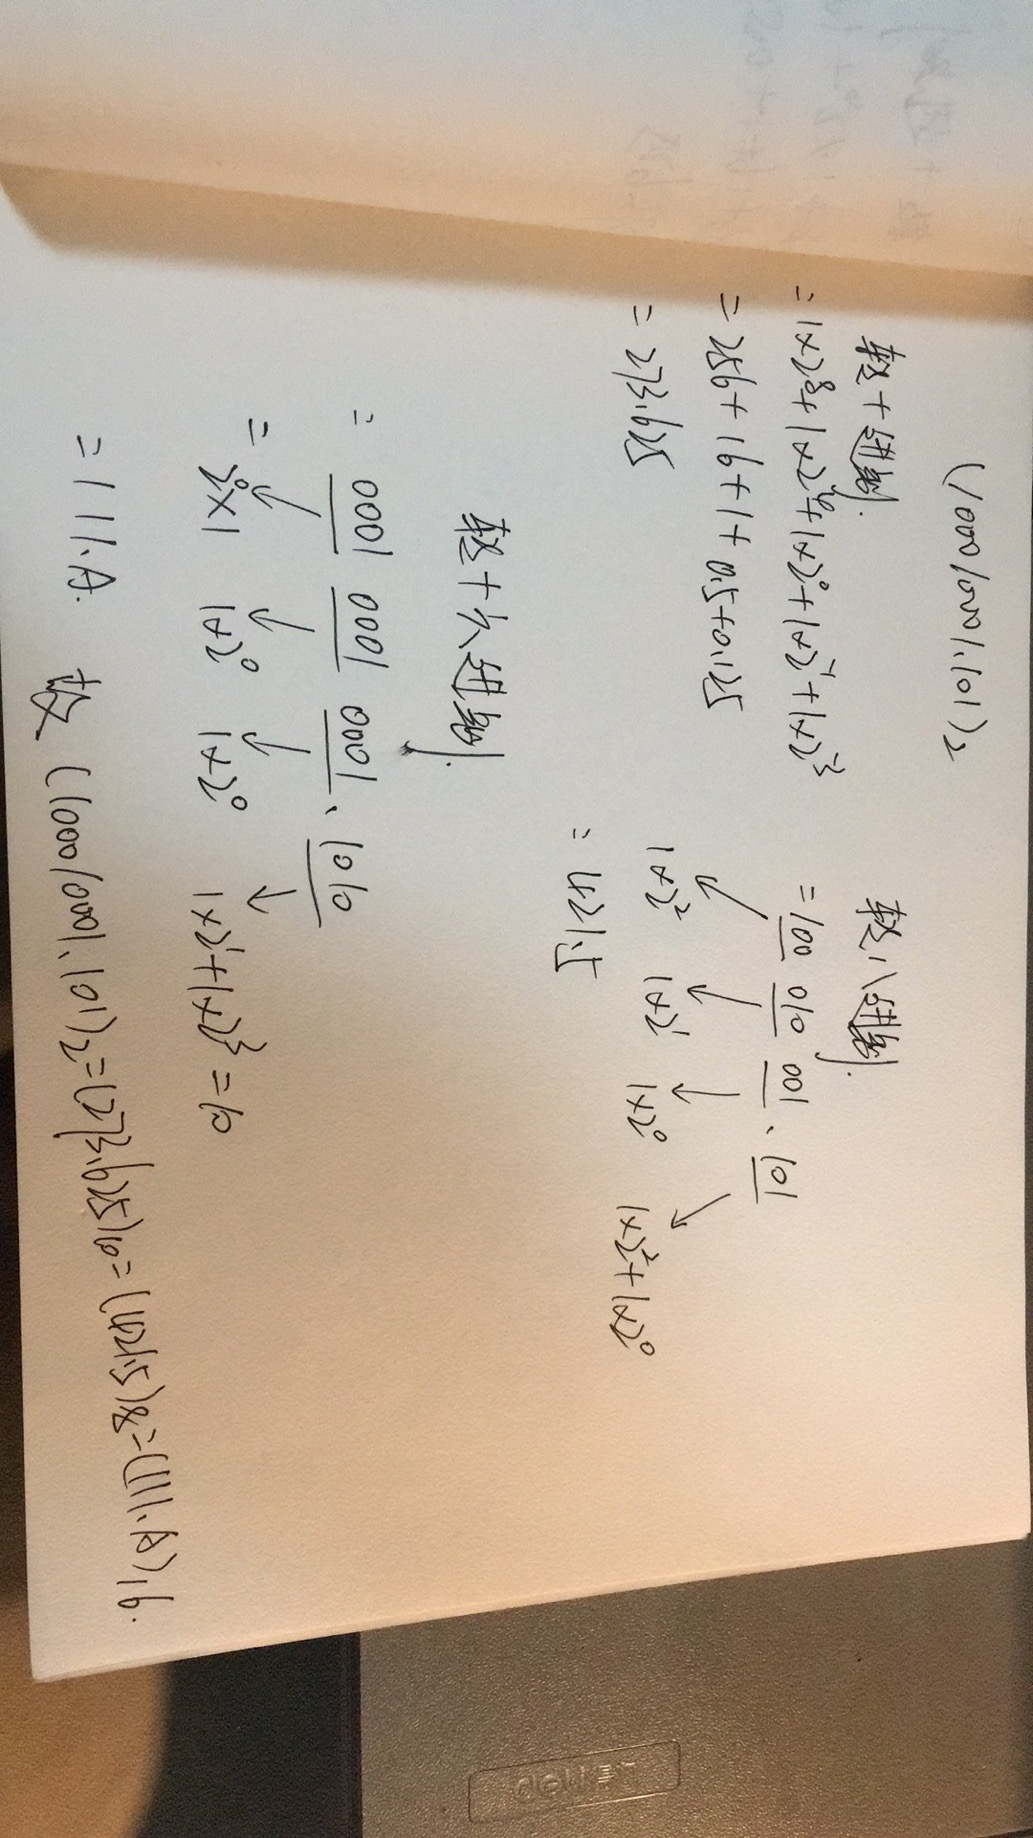 (100010001.101)₂
转十进制.
=1×2⁸+1×2⁴+1×2⁰+1×2⁻¹+1×2⁻³
=256+16+1+0.5+0.125
=273.625
转八进制.
=100 010 001 . 101
1×2² 1×2¹ 1×2⁰ 1×2²+1×2⁰
=421.5
转十六进制.
= 0001 0001 0001 . 1010
= 2⁰×1 1×2⁰ 1×2⁰ 1×2¹+1×2³=10
=111.A.
故 (100010001.101)₂=(273.625)₁₀=(421.5)₈=(111.A)₁₆.